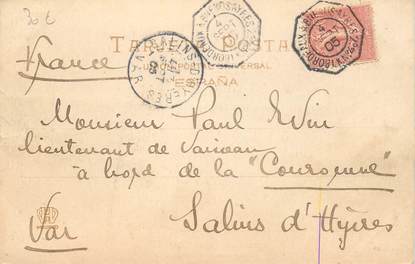 30 €
TARJETA POSTAL
UNIÓN POSTAL UNIVERSAL
ESPAÑA
France
Monsieur Paul
lieutenant de Vaisseau
à bord de la "Couronne"
Salins d'Hyères
Var